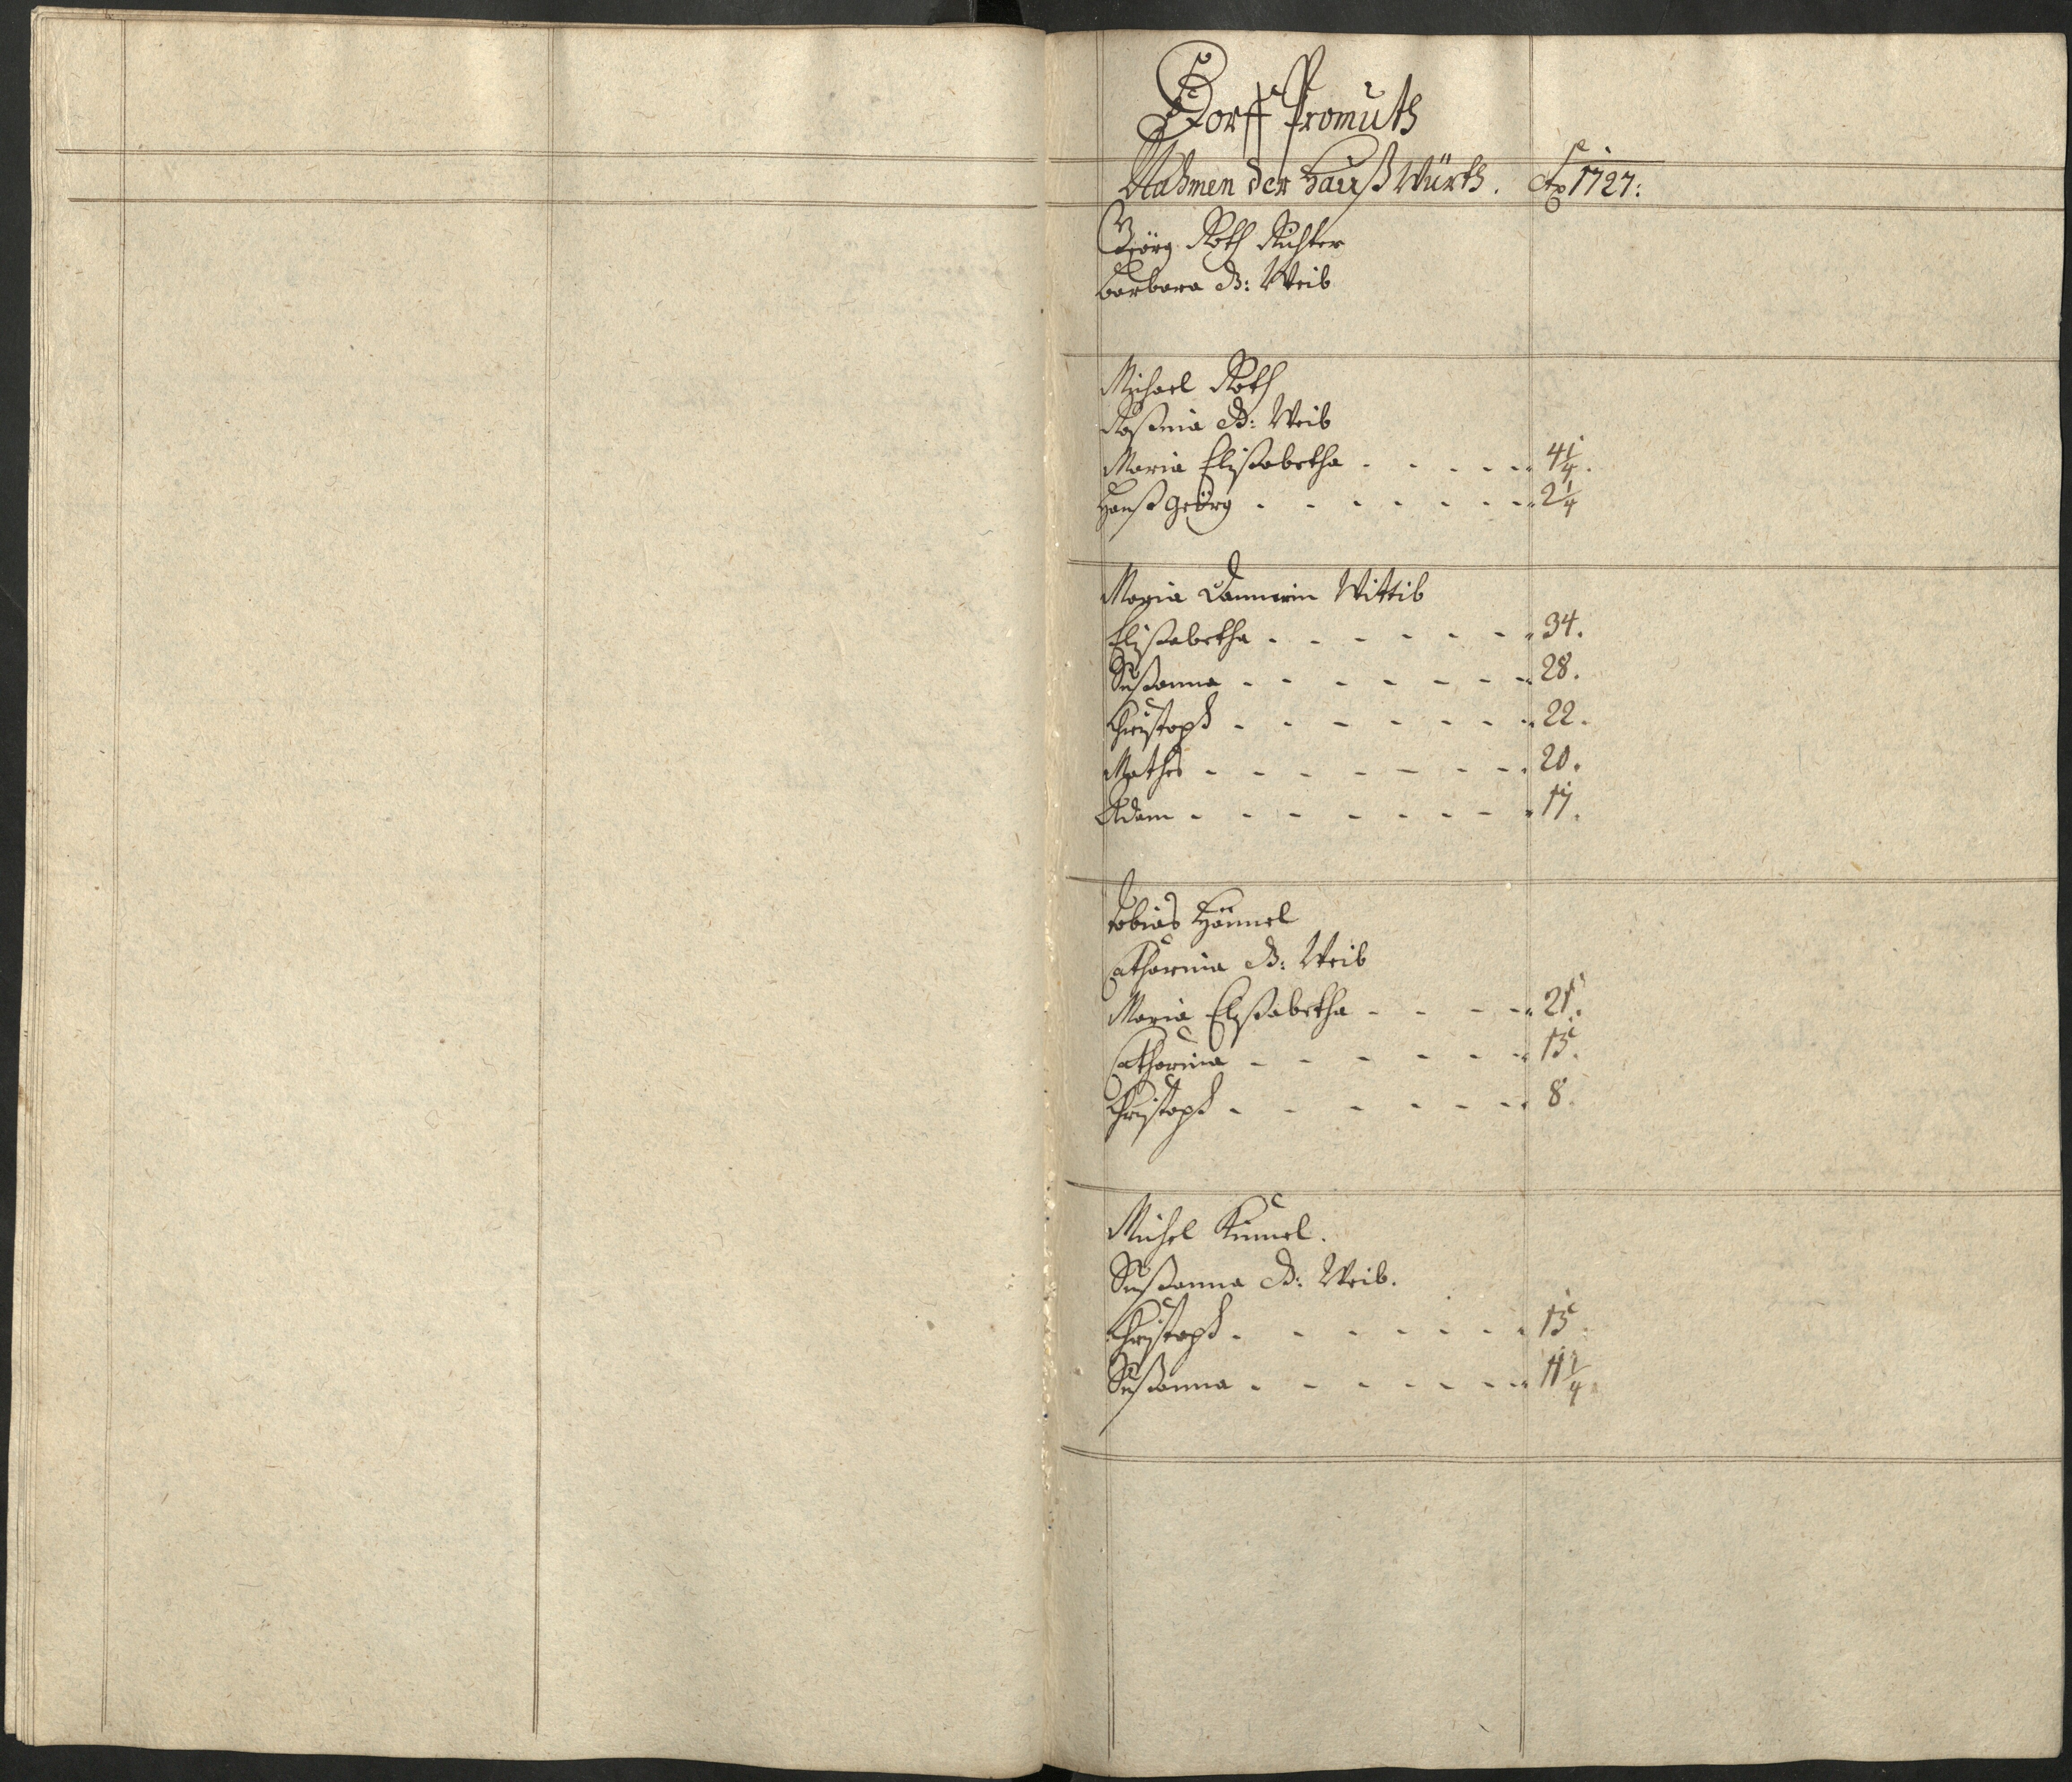 Dorff Promuth
Nahmen der Hauß Würth. Ao 1727:
Geörg Roth Richter
Barbara d: Weib
Michael Roth
Roßina d: Weib
Maria Elisabetha - - - - 4 1/4.
Hanß Geörg - - - - - - 2 1/4
Maria Dannerin Wittib
Elisabetha - - - - - - 34.
Sußanna - - - - - - - 28.
Christoph - - - - - - - 22.
Mathes - - - - - - - 20.
Adam - - - - - - - 17.
Tobias Hännel
Catharina d: Weib
Maria Elisabetha - - - - 21.
Catharina - - - - - - 15.
Christoph - - - - - - 8.
Michel Kümel.
Sußanna d: Weib.
Christoph - - - - - - 15.
Sußanna - - - - - - 11 1/4.